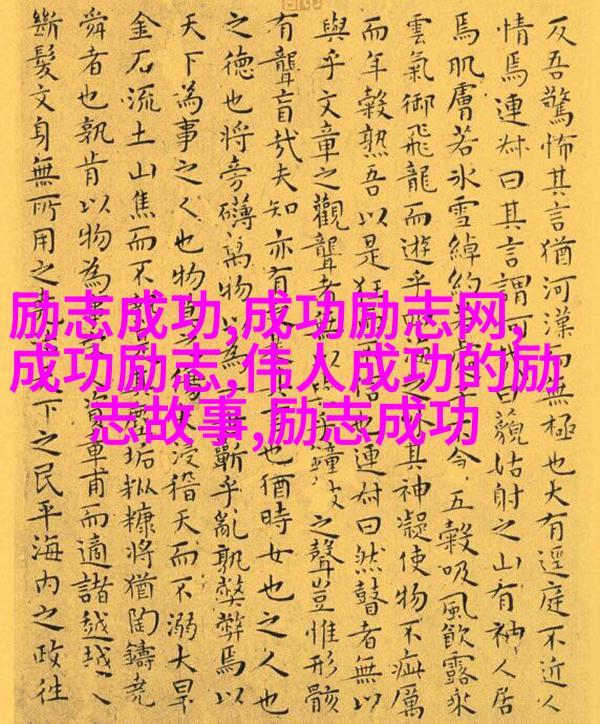 励志成功,成功励志网,
成功励志,伟人成功的励
志故事,励志成功
反吾驚怖其言猶河漢而無極也大有逕庭不近人
情焉連叔曰其言謂何曰藐姑射之山有神人居
焉肌膚若冰雪綽約若五穀吸風飲露乘
雲氣御飛龍而遊乎海之其神凝使物不疵厲
而年穀熟吾以是狂信也連叔曰然瞽者無以
與乎文章之觀聾者無以鐘之聲豈惟形骸
有聾盲哉夫知亦有也猶時女也之人也
之德也將旁礴萬物以為蘄乎亂孰弊弊焉以
天下為事之人也物莫之傷浸稽天而不溺大旱
金石流土山焦而不塵垢粃糠將猶陶鑄堯
舜者也孰肯以物為資章甫而適諸越越人
斷髮文身無所用之下之民平海內之政往